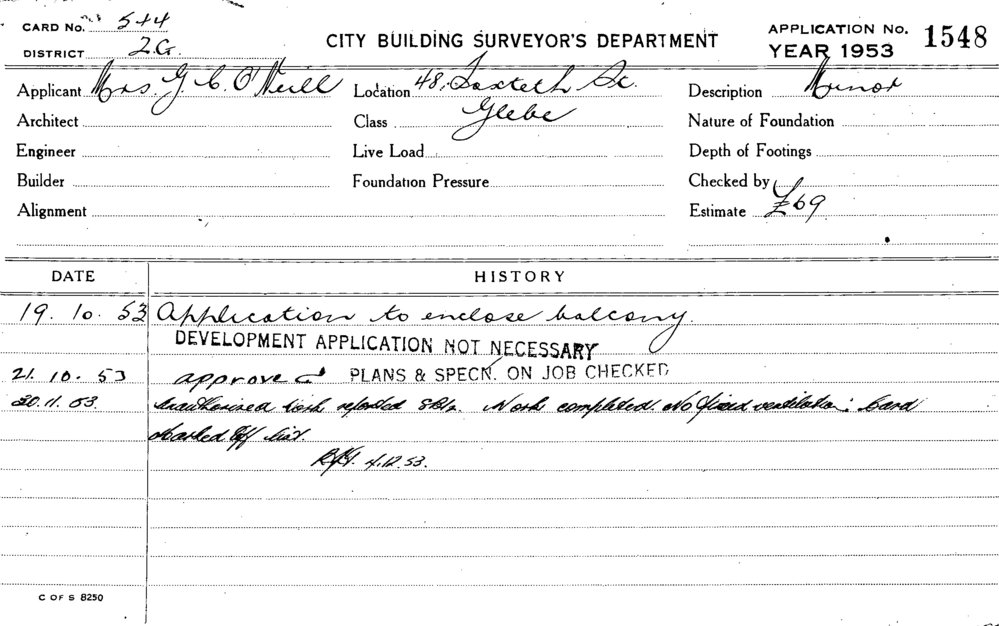 CARD No. 544
DISTRICT 2.G.
CITY BUILDING SURVEYOR'S DEPARTMENT
APPLICATION No. 1548
YEAR 1953
Applicant Mrs. G. C. O'Neill Location 48, Toxteth St. Description Minor
Architect Class Glebe Nature of Foundation
Engineer Live Load Depth of Footings
Builder Foundation Pressure Checked by
Alignment Estimate £69
DATE HISTORY
19. 10. 53 Application to enclose balcony.
DEVELOPMENT APPLICATION NOT NECESSARY
21. 10. 53 approved PLANS & SPECN. ON JOB CHECKED
20. 11. 53. Unauthorised work reported Work completed. No fixed ventilation: Card
Marked off list.
4.12.53.
C OF S 8250